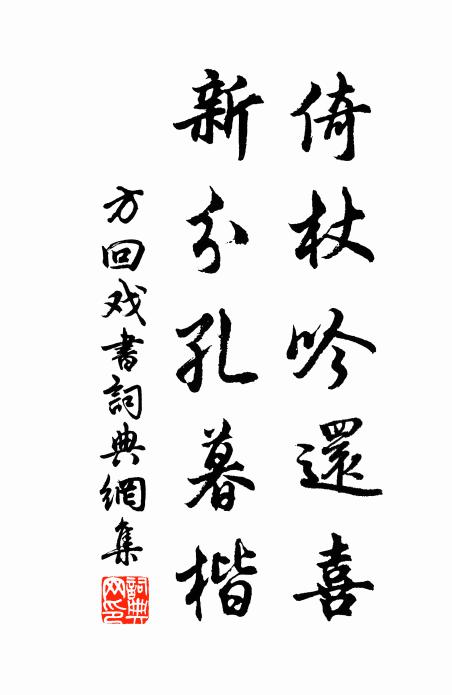 倚杖吟還喜
新分孔暮楷
方回戏書詞典網集
詞典網印